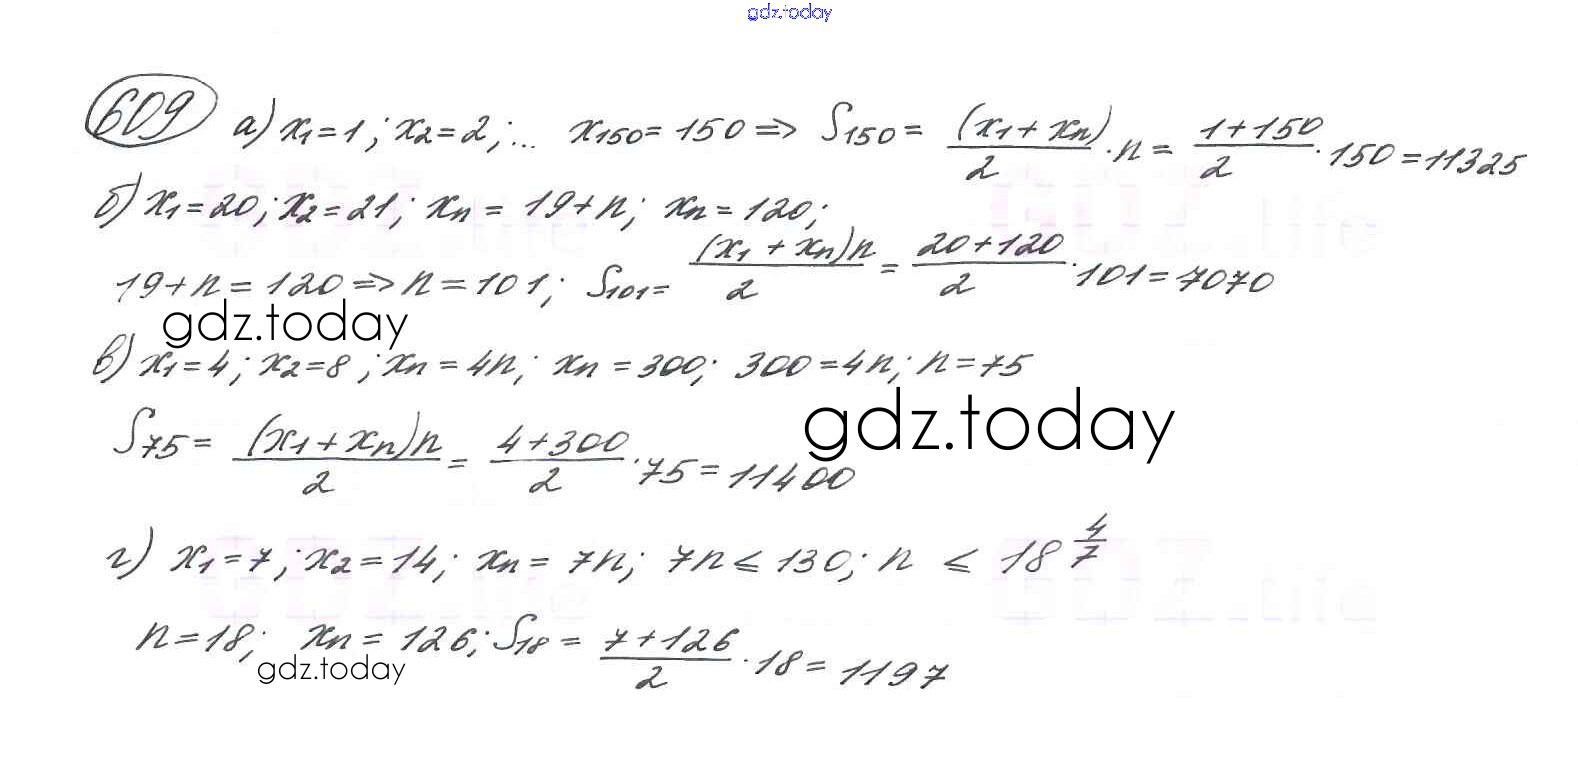 gdz.today
609 а) x₁=1; x₂=2;... x₁₅₀=150 => S₁₅₀= (x₁+xₙ)/2 · n = (1+150)/2 · 150=11325
б) x₁=20; x₂=21; xₙ = 19+n; xₙ=120;
19+n=120 => n=101; S₁₀₁= (x₁+xₙ)n/2 = (20+120)/2 · 101=7070
gdz.today
в) x₁=4; x₂=8; xₙ=4n; xₙ=300; 300=4n; n=75
gdz.today
S₇₅= (x₁+xₙ)n/2 = (4+300)/2 · 75=11400
г) x₁=7; x₂=14; xₙ= 7n; 7n ≤ 130; n ≤ 18 4/7
n=18; xₙ= 126; S₁₈= (7+126)/2 · 18=1197
gdz.today